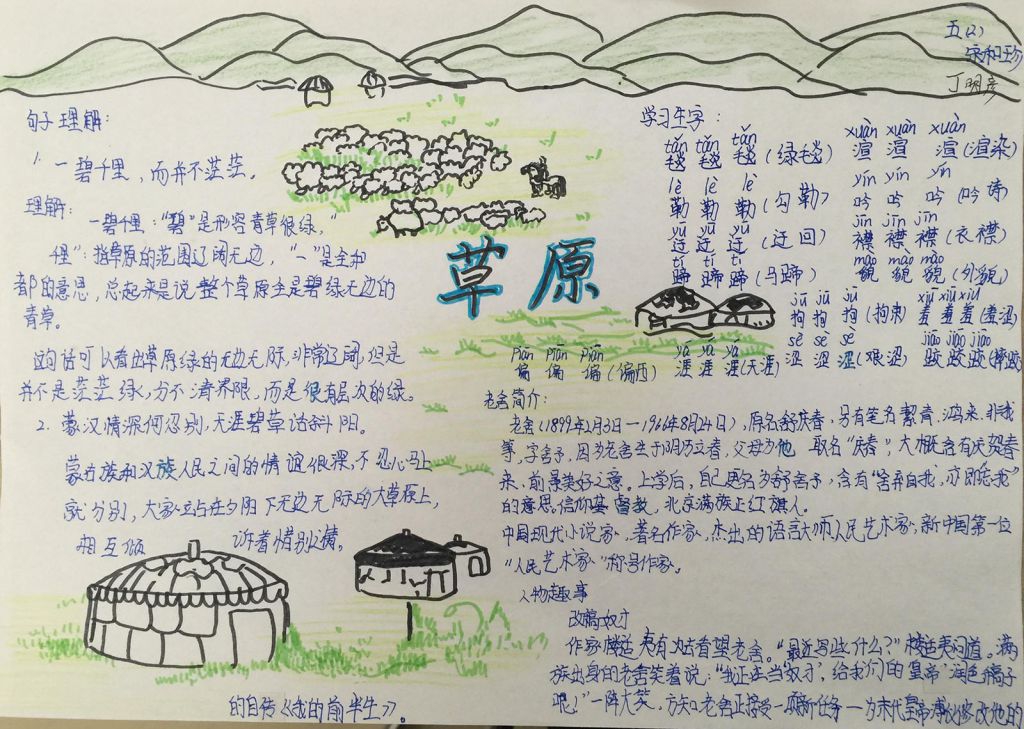 五(2)
宋和珍
丁明彦
句子理解：
1. 一碧千里，而并不茫茫。
理解：
一碧千里：“碧”是形容青草很绿，“
千里”：指草原的范围辽阔无边，“一”是全和
都的意思，总起来是说整个草原全是碧绿无边的
青草。
这句话可以看出草原绿的无边无际，非常辽阔，但是
并不是茫茫绿，分不清界限，而是很有层次的绿。
2. 蒙汉情深何忍别，天涯碧草话斜阳。
蒙古族和汉族人民之间的情谊很深，不忍心马上
就分别，大家立站在夕阳下无边无际的大草原上，
相互倾 诉着惜别之情。
草原
学习生字：
tǎn tǎn tǎn xuàn xuàn xuàn
毯 毯 毯(绿毯) 渲 渲 渲(渲染)
lè lè lè yín yín yín
勒 勒 勒(勾勒) 吟 吟 吟(吟诗)
yū yū yū jīn jīn jīn
迂 迂 迂(迂回) 襟 襟 襟(衣襟)
tí tí tí mào mào mào
蹄 蹄 蹄(马蹄) 貌 貌 貌(外貌)
jū jū jū xiū xiū xiū
拘 拘 拘(拘束) 羞 羞 羞(羞涩)
piān piān piān yá yá yá sè sè sè jiāo jiāo jiāo
偏 偏 偏(偏西) 涯 涯 涯(天涯) 涩 涩 涩(艰涩) 跤 跤 跤(摔跤)
老舍简介：
老舍(1899年2月3日—1966年8月24日)，原名舒庆春，另有笔名絜青、鸿来、非我
等，字舍予，因为老舍生于阴历立春，父母为他 取名“庆春”，大概含有庆贺春
来、前景美好之意。上学后，自己更名为舒舍予，含有“舍弃自我，亦即忘我”
的意思。信仰基督教，北京满族正红旗人。
中国现代小说家、著名作家，杰出的语言大师、人民艺术家，新中国第一位
“人民艺术家”称号作家。
人物趣事
改稿奴才
作家楼适夷有次去看望老舍。“最近写些什么？”楼适夷问道。满
族出身的老舍笑着说：“我正在当‘奴才’，给我们的‘皇帝’润色稿子
呢！”一阵大笑，方知老舍正接受一项新任务—为末代皇帝溥仪修改他的
的自传《我的前半生》。